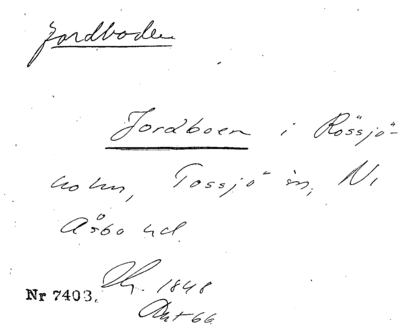 Jordboden
Jordboen i Rössjö-
holm, Tossjö sn, N.
Åsbo hd.
Nr 7403.
Thr. 1848